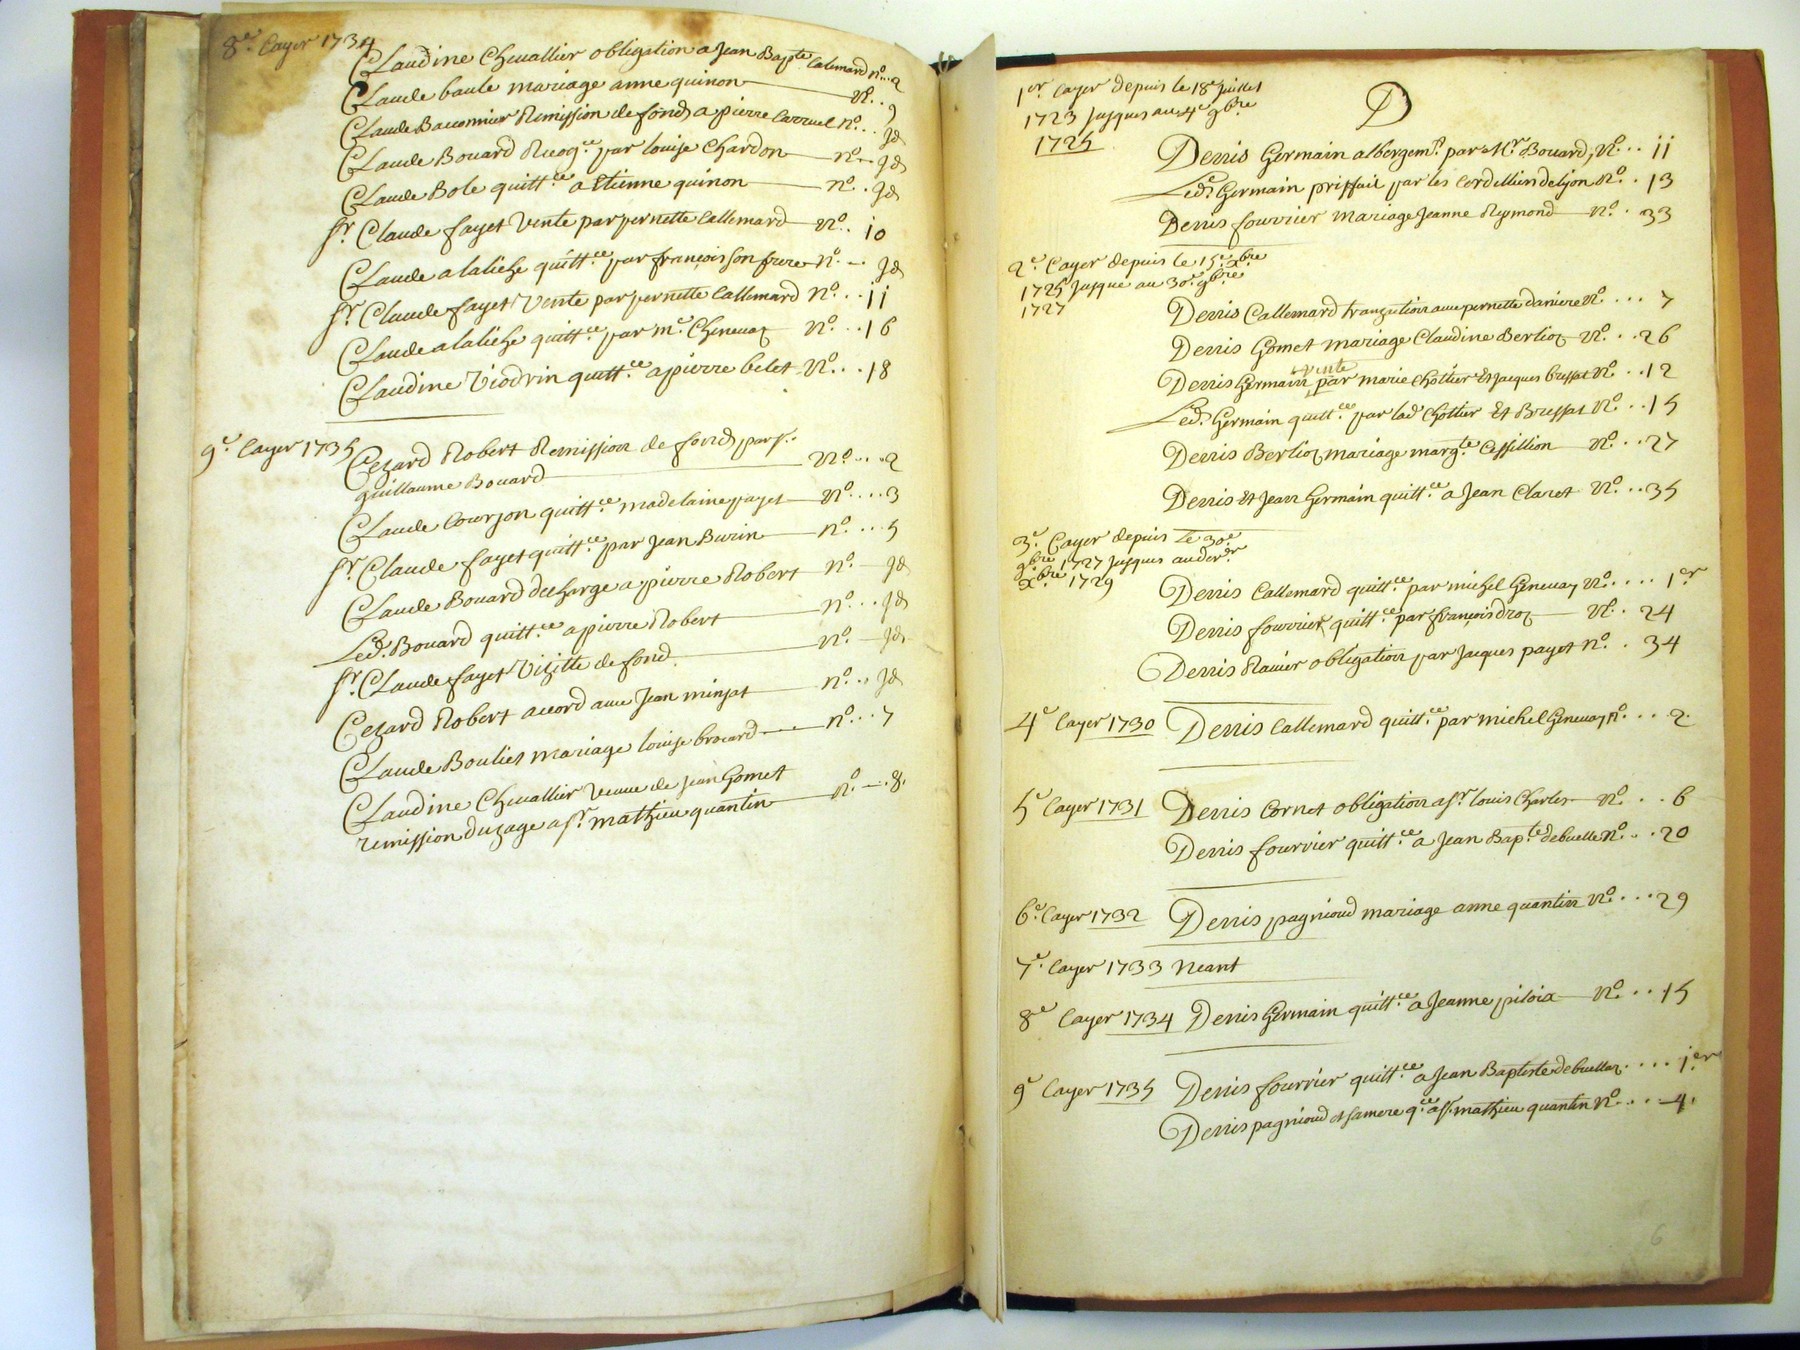 8e Cayer 1734
Claudine Chevallier obligation a Jean Bapte Calemard no.. 2
Claude baule mariage anne quinon no.. 9
Claude Bauonnier Remission de fonds a pierre Carruel no... Jd
Claude Bouard Recogce par louise Chardon no.. Jd
Claude Bole quittce a Etienne quinon no.. Jd
sr. Claude fayet Vente par pernette Callemard no.. 10
Claude alaliche quittce par françois son frere no.. Jd
sr. Claude fayet Vente par pernette Callemard no... 11
Claude alaliche quittce par me. Chenevaz no... 16
Claudine Viodrin quittce a pierre belet no... 18
9e Cayer 1735
Cezard Robert Remission de fonds par sr.
guillaume Bouard no.... 2
Claude Courjon quittce madelaine payet no.... 3
sr. Claude fayet quittce par Jean Burin no... 5
Claude Bouard decharge a pierre Robert no. Jd
Led. Bouard quittce a pierre Robert no... Jd
sr. Claude fayet Vizitte de fond no. Jd
Cezard Robert accord avec Jean minjat no... Jd
Claude Boulies mariage louise brocard no... 7
Claudine Chevallier Veuve de Jean Gomet
remission duzage a sr. mathieu quantin no... 8.
1er Cayer depuis le 18e Juillet
1723 Jusques au 4e 9bre
1725
D
Denis Germain albergemt par Mr Bouard, no.. 11
Led. Germain priffait par les Cordelliers de lyon no.. 13
Denis fourrier mariage Jeanne Reymond no.. 33
2e. Cayer depuis le 15e xbre
1725 Jusque au 30e. 9bre
1727
Denis Callemard tranzation avec pernette daniere no... 7
Denis Gomet mariage Claudine Berlioz no... 26
vente
Denis Germain par marie Chottier Et Jacques bressat no... 12
Led. Germain quittce par lad Chottier Et Bressat no... 15
Denis Berlioz mariage margte Cessillion no... 27
Denis Et Jean Germain quittce a Jean Claret no... 35
3e. Cayer depuis Le 30e
9bre 1727 Jusques au derer
xbre 1729
Denis Callemard quittce par michel Genevay no.... 1er
Denis fourrier quittce par françois droz no.. 24
Denis Ravier obligation par Jacques payet no.. 34
4e Cayer 1730 Denis Callemard quittce par michel Genevay no.... 2.
5e Cayer 1731 Denis Cornet obligation a sr. louis Charles no... 6
Denis fourrier quittce a Jean Bapte debuelle no... 20
6e. Cayer 1732 Denis pagnioud mariage anne quantin no... 29
7e. Cayer 1733 Neant
8e Cayer 1734 Denis Germain quittce a Jeanne piloix no... 15
9e Cayer 1735 Denis fourrier quittce a Jean Baptiste debuellaz.... 1er
Denis pagnioud et sa mere qce a sr. mathieu quantin no.... 4.
6